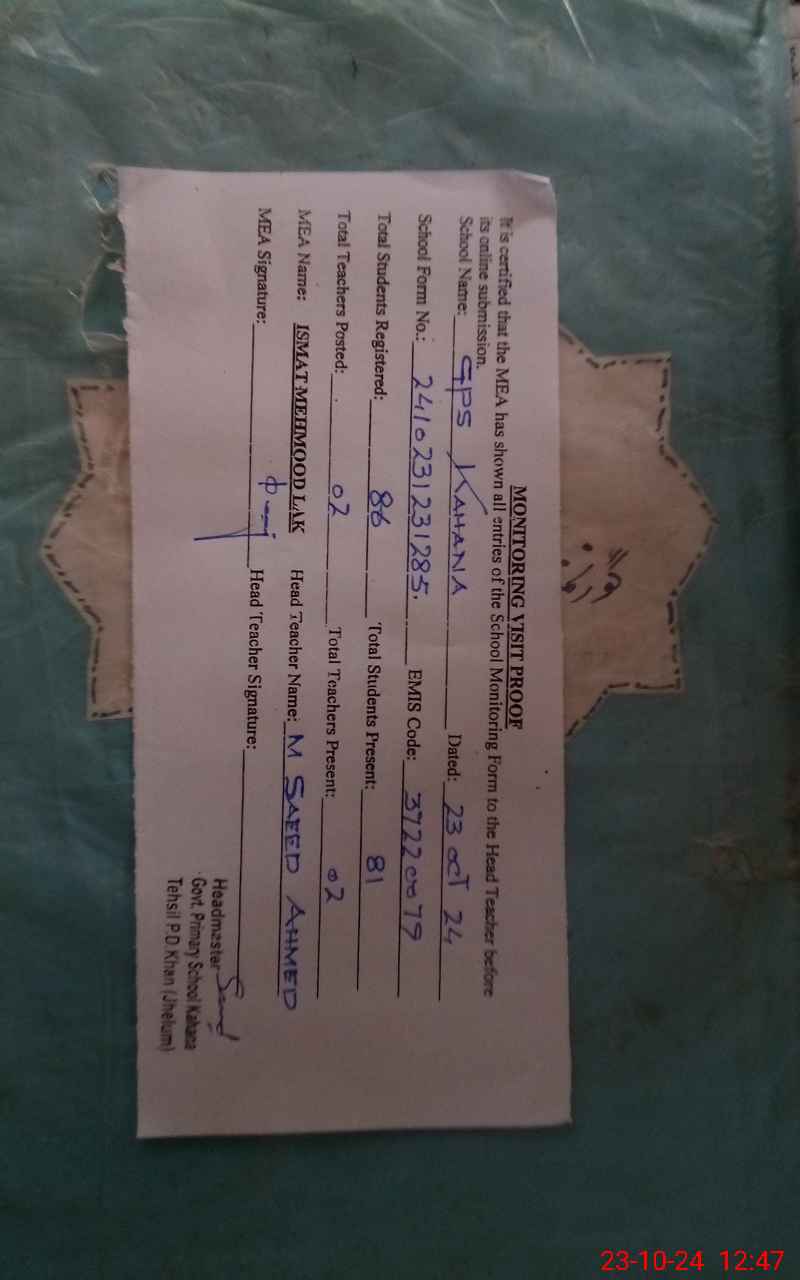 MONITORING VISIT PROOF
It is certified that the MEA has shown all entries of the School Monitoring Form to the Head Teacher before
its online submission.
School Name: GPS KAHANA Dated: 23 OCT 24
School Form No.: 2410231231285. EMIS Code: 37220079
Total Students Registered: 86 Total Students Present: 81
Total Teachers Posted: 02 Total Teachers Present: 02
MEA Name: ISMAT MEHMOOD LAK Head Teacher Name: M SAEED AHMED
MEA Signature: Head Teacher Signature:
Headmaster
Govt. Primary School Kahana
Tehsil P.D.Khan (Jhelum)
23-10-24 12:47